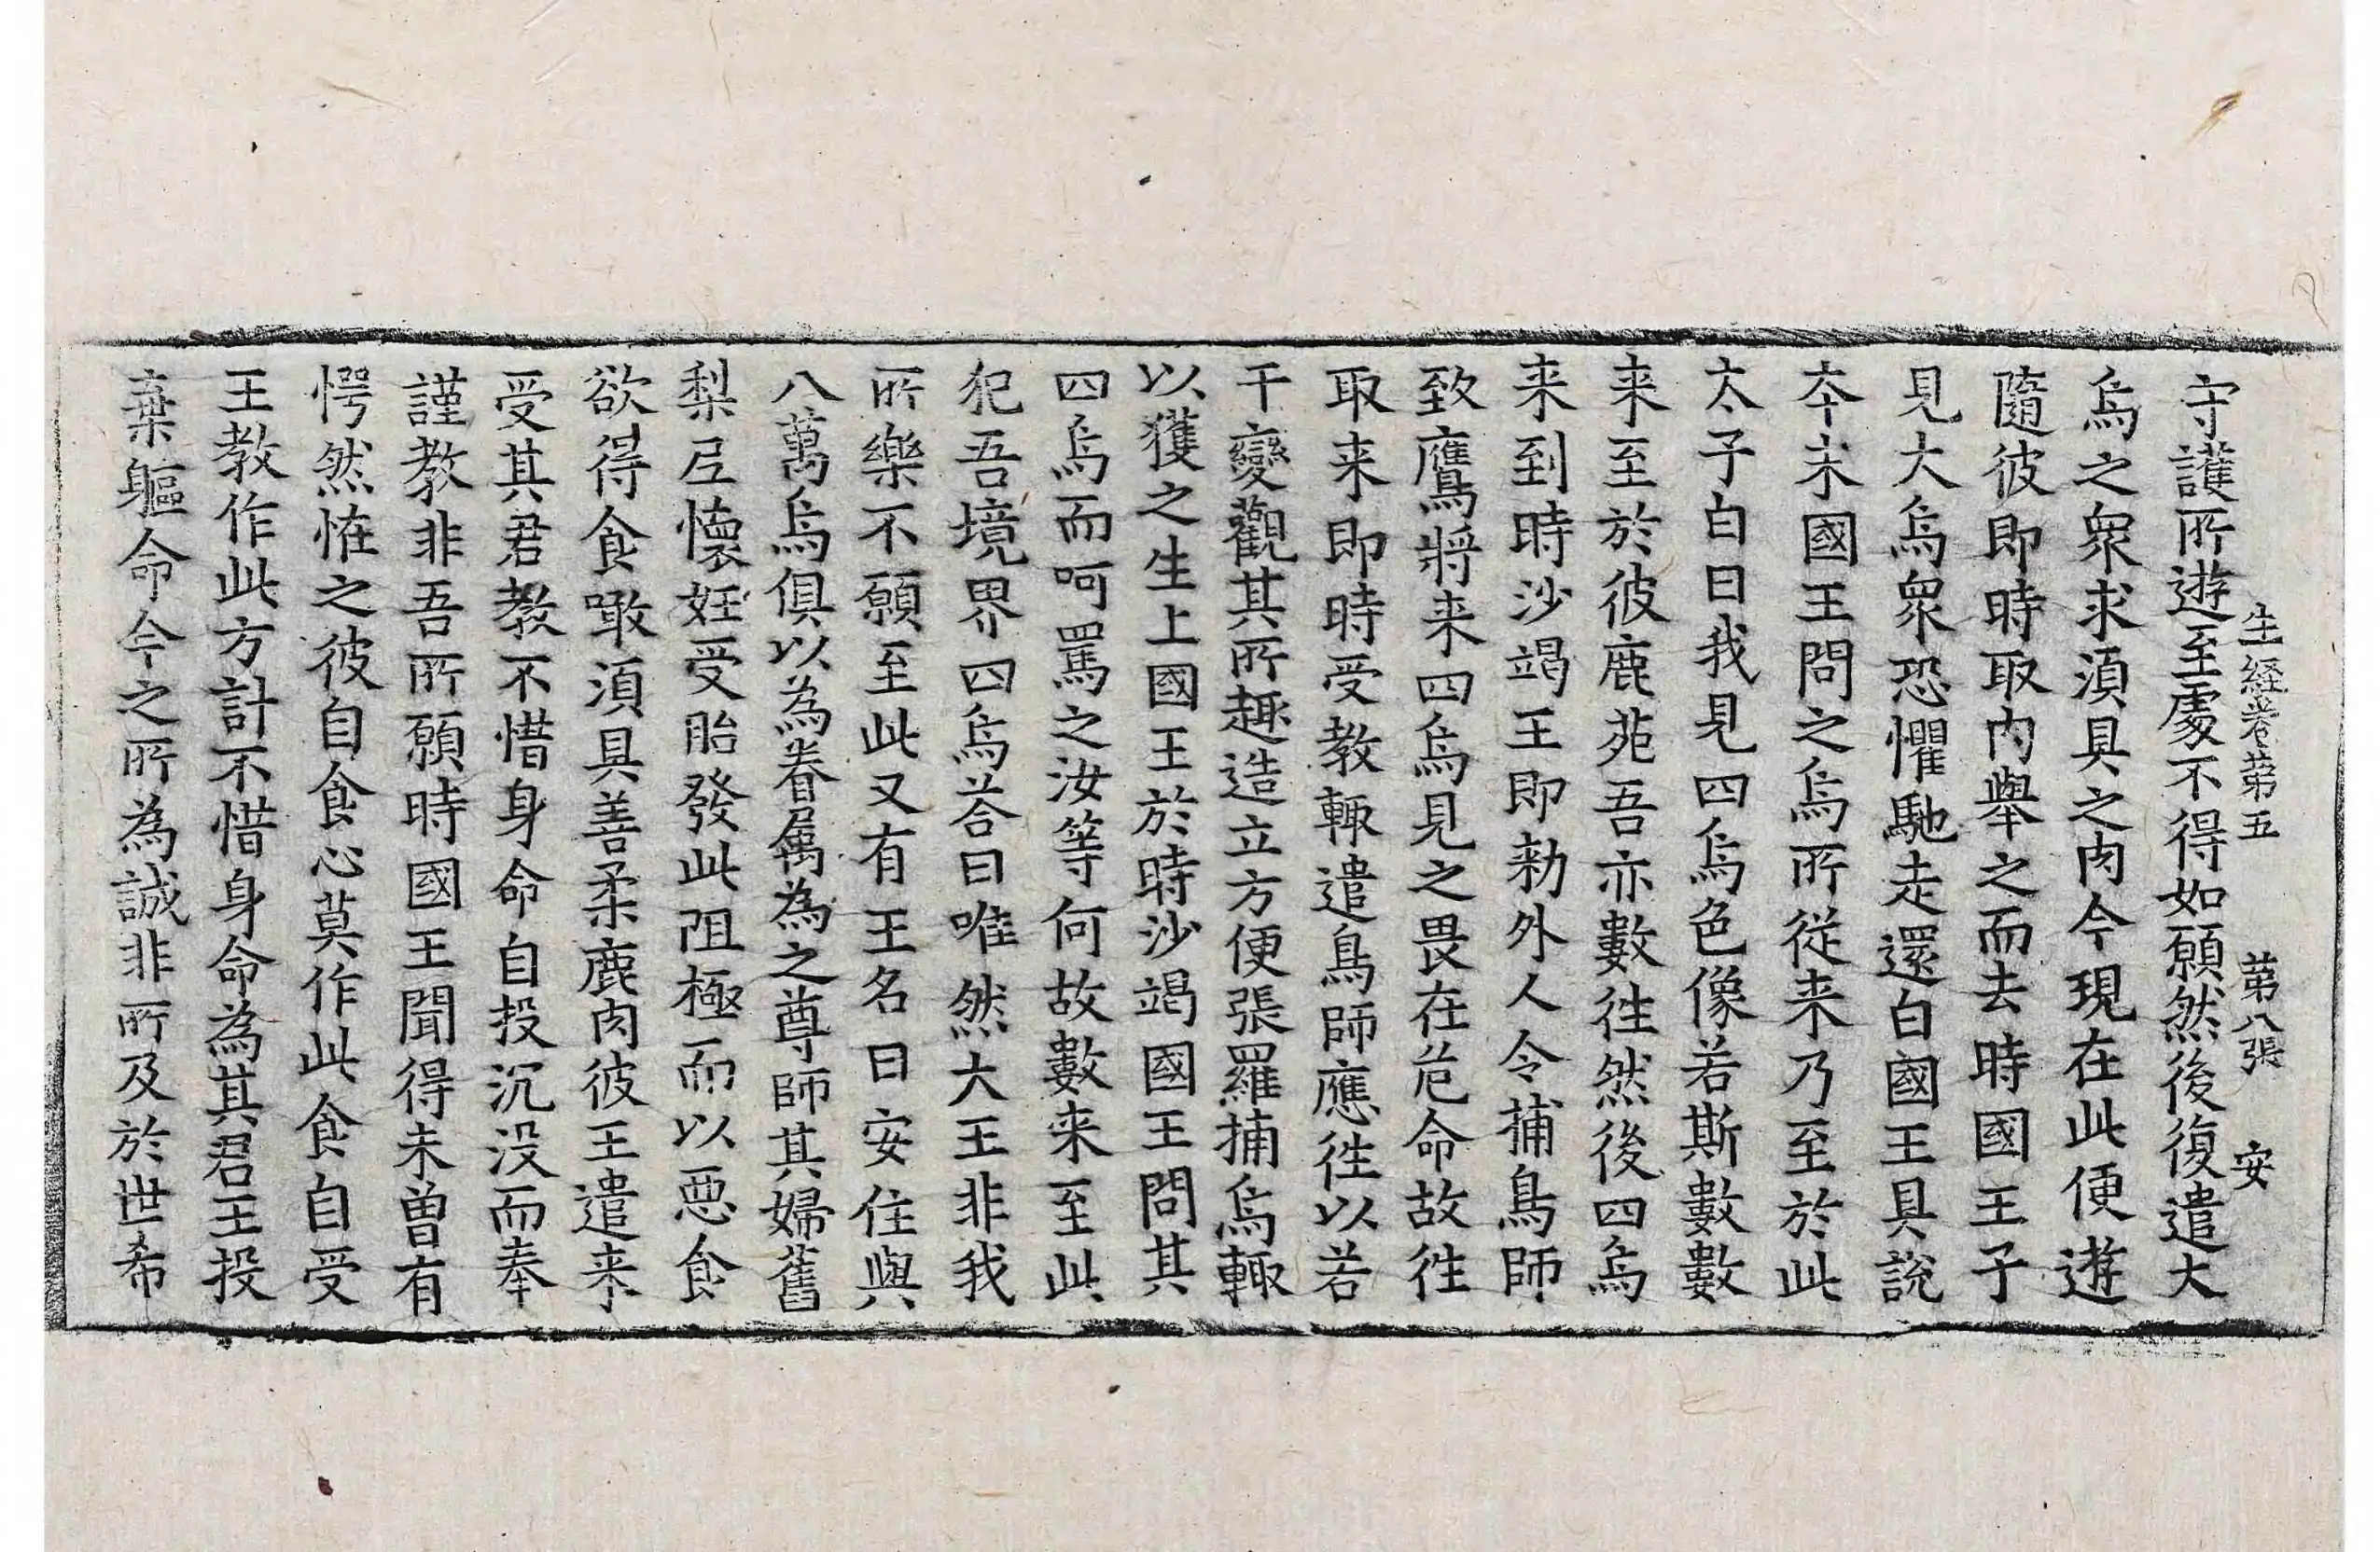 生経卷第五 第八張 安
守護所遊至處不得如願然後復遣大
烏之衆求湏具之肉今現在此便遊
隨彼即時取肉舉之而去時國王子
見大烏衆恐懼馳走還白國王具說
本末國王問之烏所從来乃至於此
太子白曰我見四烏色像若斯數數
来至於彼鹿苑吾亦數往然後四烏
来到時沙竭王即勑外人令捕鳥師
致鷹將来四烏見之畏在危命故往
取来即時受教輙遣鳥師應往以若
干變觀其所趣造立方便張羅捕烏輙
以獲之生上國王於時沙竭國王問其
四烏而呵罵之汝等何故數来至此
犯吾境界四烏荅曰唯然大王非我
所樂不願至此又有王名曰安住與
八萬烏俱以為眷屬為之尊師其婦舊
梨𠯵懷妊受胎發此阻極而以惡食
欲得食噉湏具善柔鹿肉彼王遣来
受其君教不惜身命自投沉没而奉
謹教非吾所願時國王聞得未曾有
愕然恠之彼自食心莫作此食自受
王教作此方計不惜身命為其君王投
棄軀命今之所為誠非所及於世希